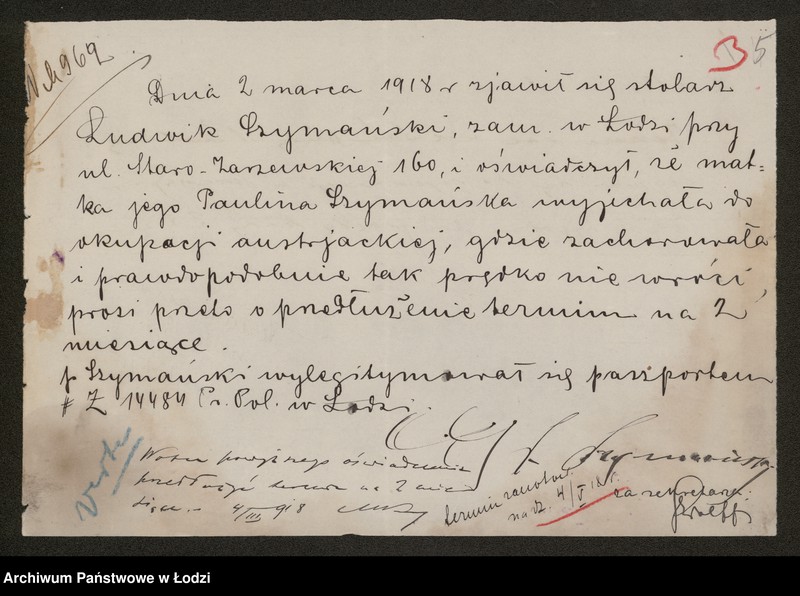 № 4969
B 5
Dnia 2 marca 1918 r zjawił się stolarz
Ludwik Szymański, zam. w Łodzi przy
ul. Staro-Zarzewskiej 160, i oświadczył, że mat=
ka jego Paulina Szymańska wyjechała do
okupacji austrjackiej, gdzie zachorowała
i prawdopodobnie tak prędko nie wróci,
prosi przeto o przedłużenie terminu na 2
miesiące.
p Szymański wylegitymował się paszportem
# Z 14484 Pr. Pol. w Łodzi.
L. Szymański
verte
Wobec powyższego oświadczenia
przedłużyć termin na 2 mie
siące.- 4/III 918
termin zanotow
na dz. 4/V 18 r.
za sekretarz:
Archiwum Państwowe w Łodzi